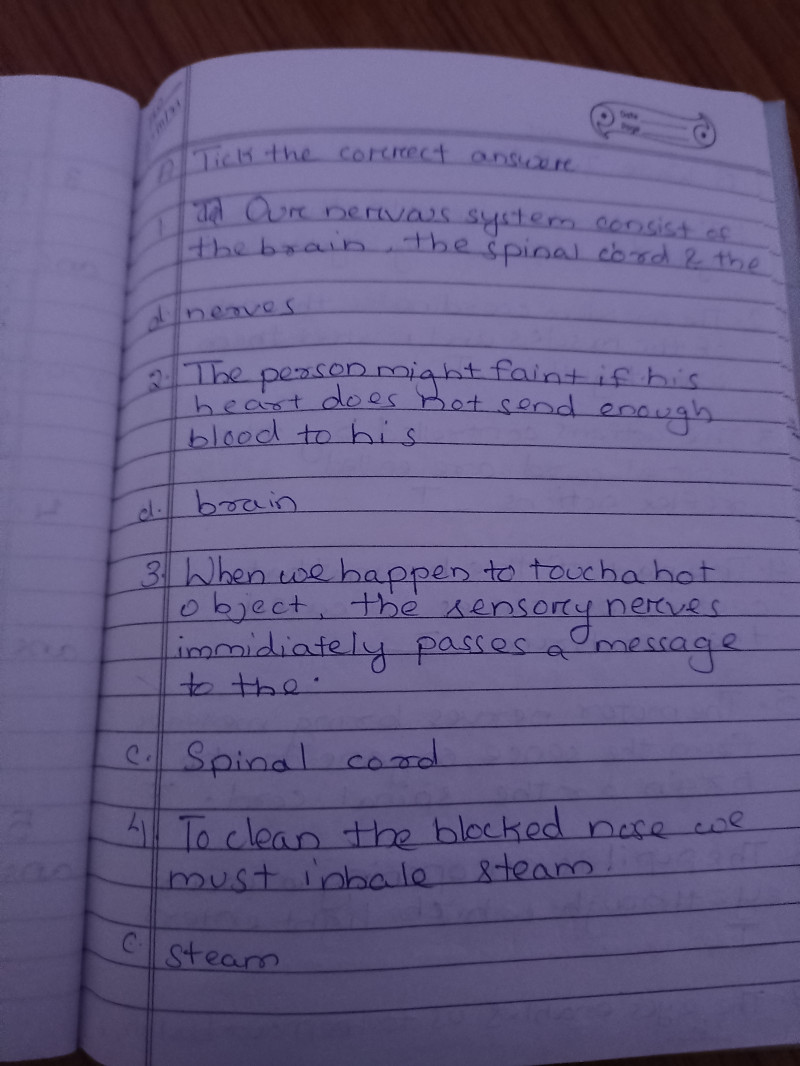 Tick the correct answere
1 Our nervous system consist of
the brain, the spinal cord & the
d. nerves
2. The person might faint if his
heart does not send enough
blood to his
d. brain
3. When we happen to touch a hot
object, the sensory nerves
immidiately passes a message
to the.
c. Spinal cord
4) To clean the blocked nose we
must inhale steam.
c. steam